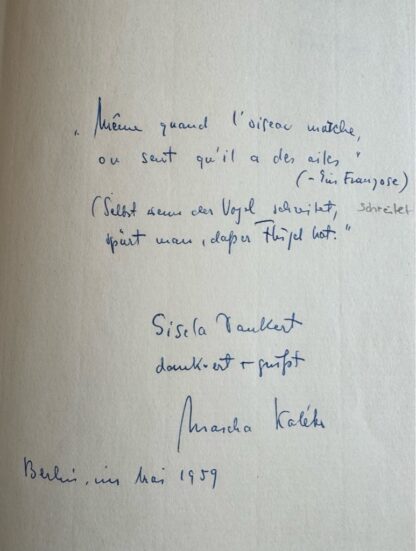 „Même quand l'oiseau marche,
on sent qu'il a des ailes"
(- Ein Franzose)
(Selbst wenn der Vogel schreitet, schreitet
spürt man, daß er Flügel hat."
Gisela Dankert
dankend + grüßt
Mascha Kaléko
Berlin, im Mai 1959